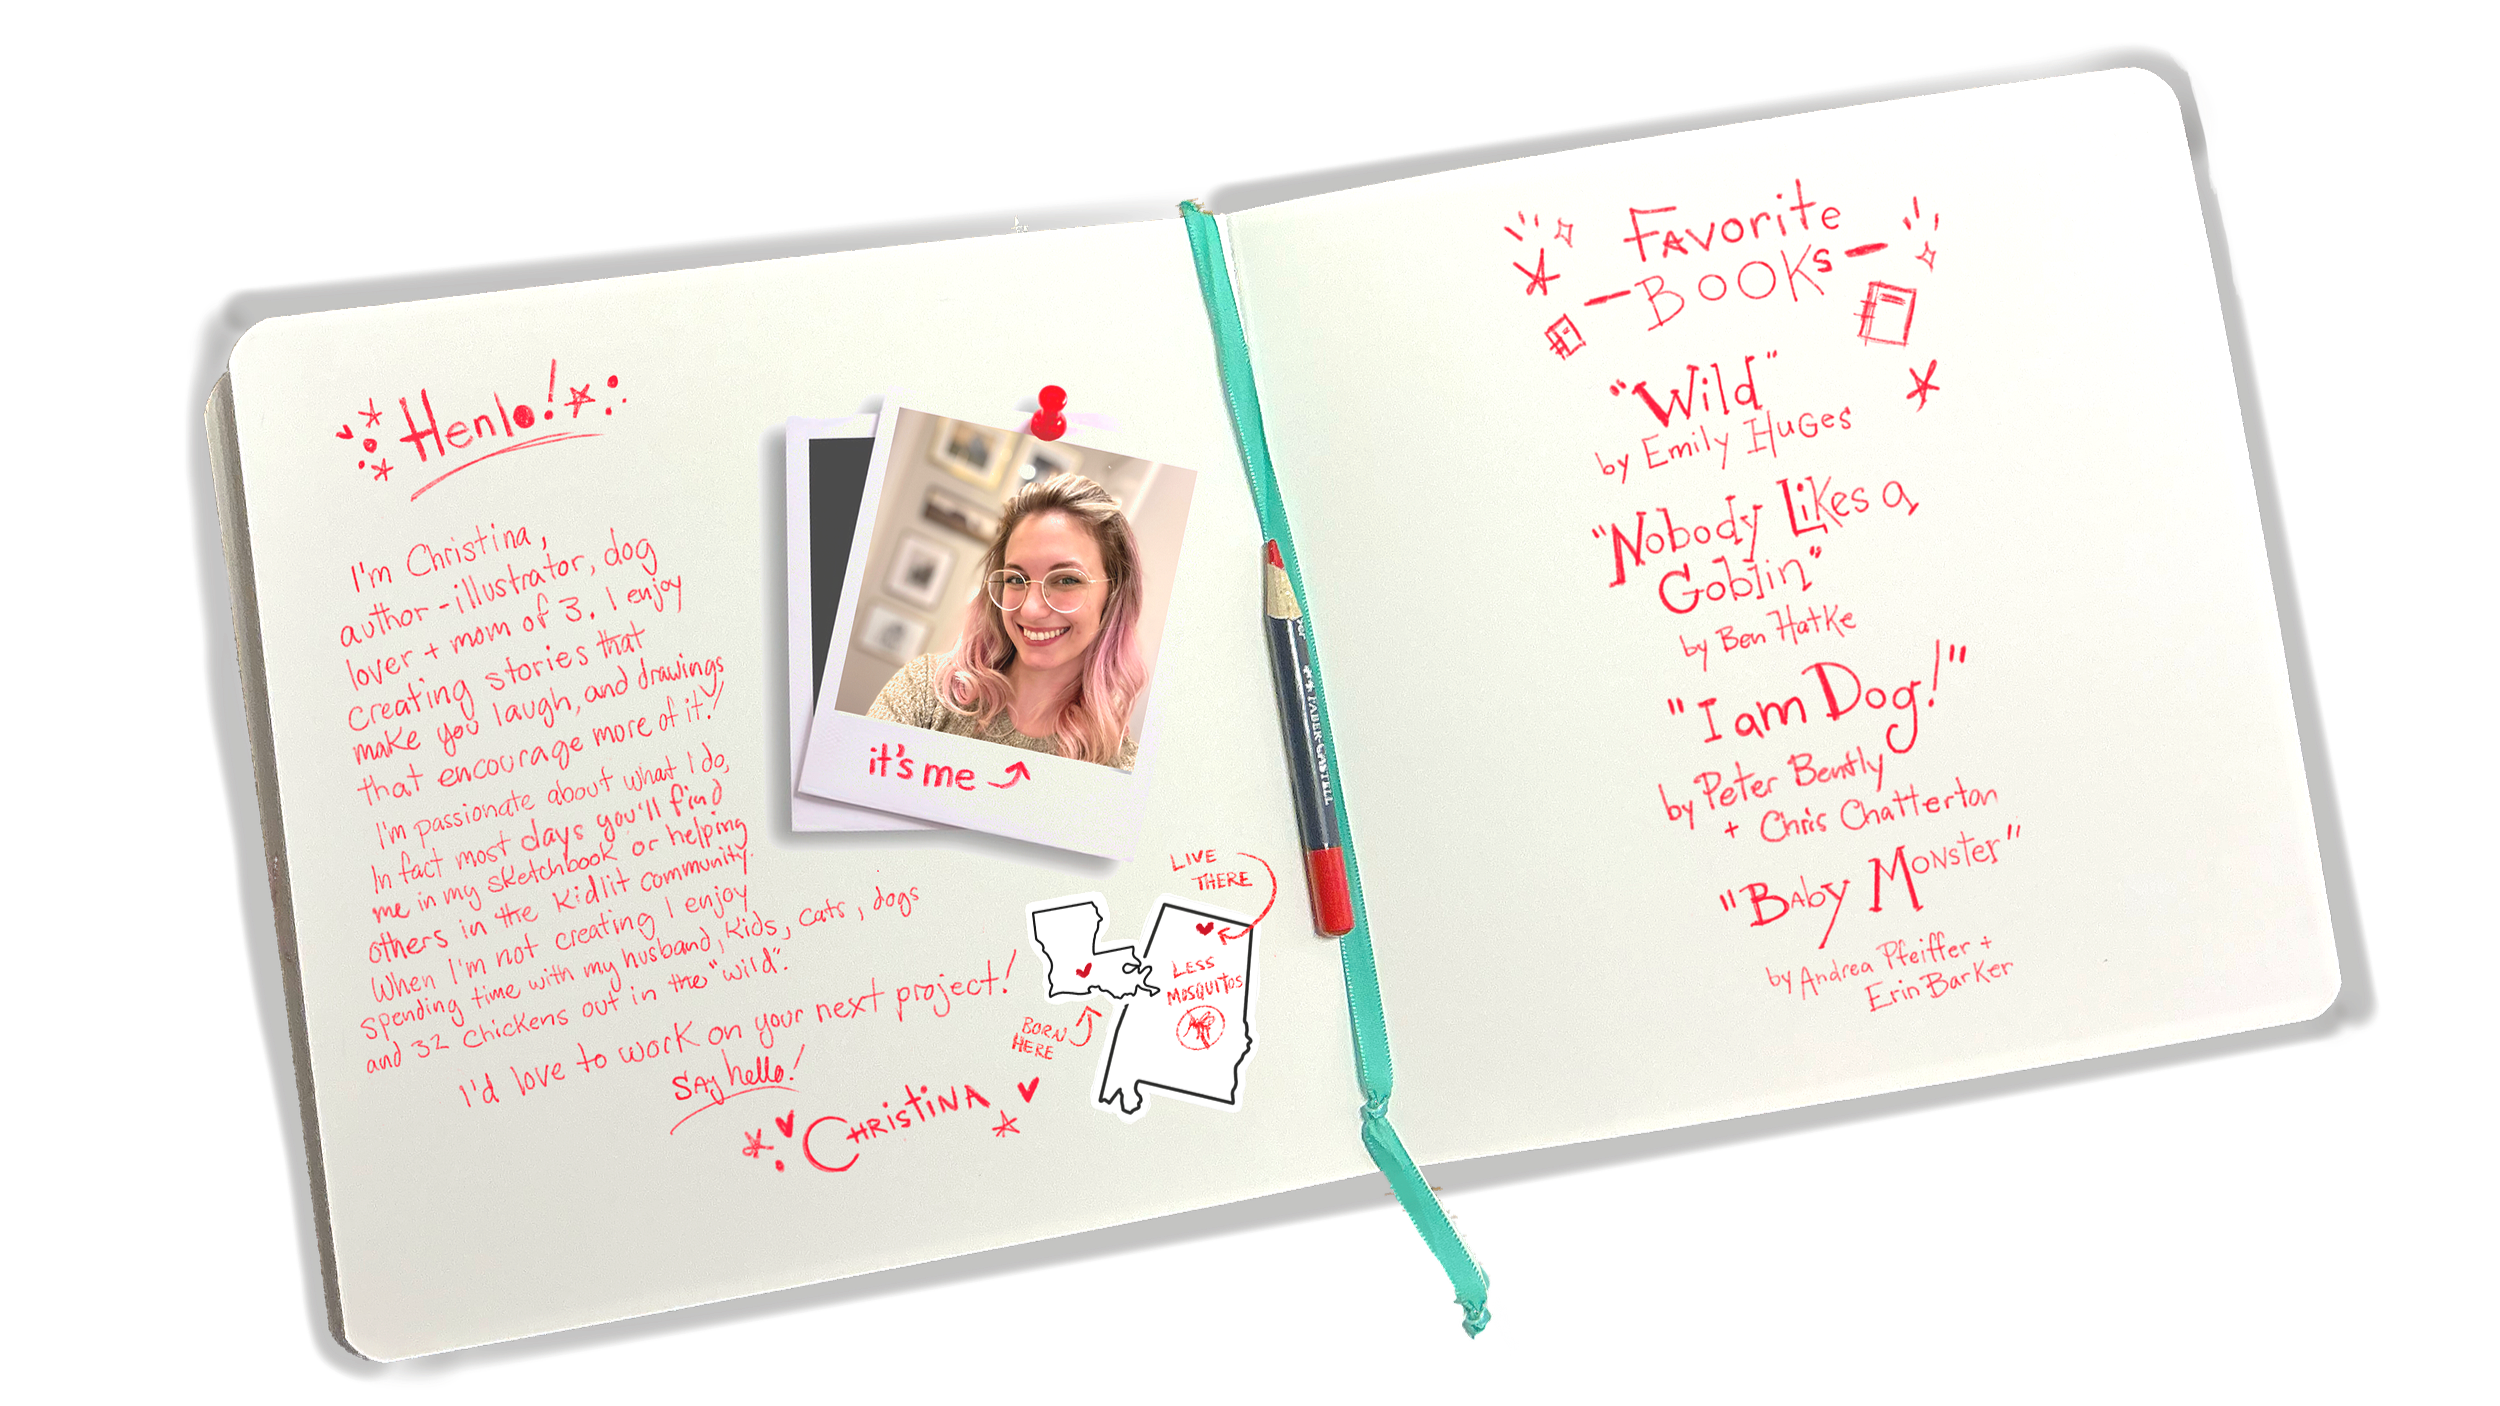 Henlo!
I'm Christina,
author-illustrator, dog
lover + mom of 3. I enjoy
creating stories that
make you laugh, and drawings
that encourage more of it!
I'm passionate about what I do,
In fact most days you'll find
me in my sketchbook or helping
others in the Kidlit community.
When I'm not creating I enjoy
spending time with my husband, Kids, cats, dogs
and 32 chickens out in the "wild".
I'd love to work on your next project!
Say hello!
CHRISTINA
it's me
LIVE
THERE
LESS
MOSQUITOS
BORN
HERE
FABER-CASTELL
Favorite
-BOOKS-
"Wild"
by Emily Huges
"Nobody Likes a
Goblin"
by Ben Hatke
"I am Dog!"
by Peter Bently
+ Chris Chatterton
"Baby Monster"
by Andrea Pfeiffer +
Erin Barker